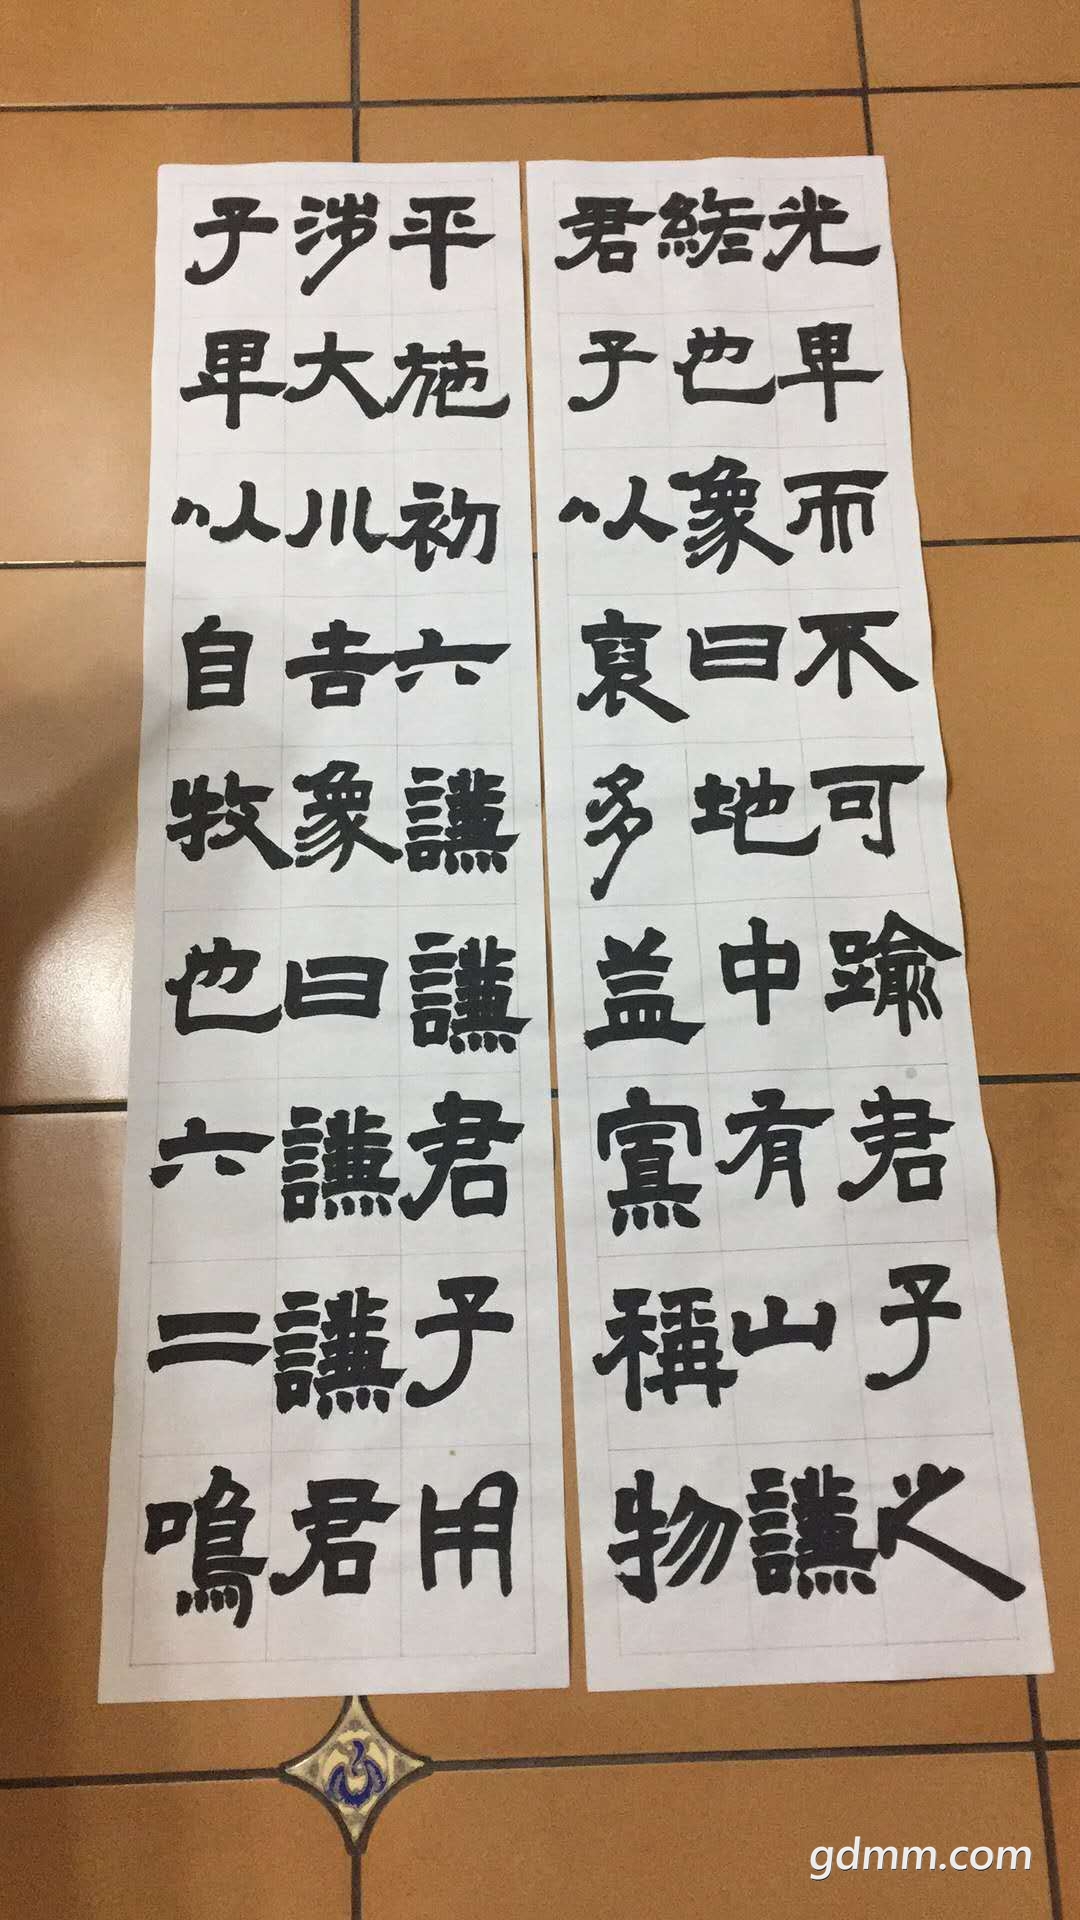 光卑而不可踰君子之
終也象曰地中有山謙
君子以裒多益寡稱物
平施初六謙謙君子用
涉大川吉象曰謙謙君
子卑以自牧也六二鳴
gdmm.com